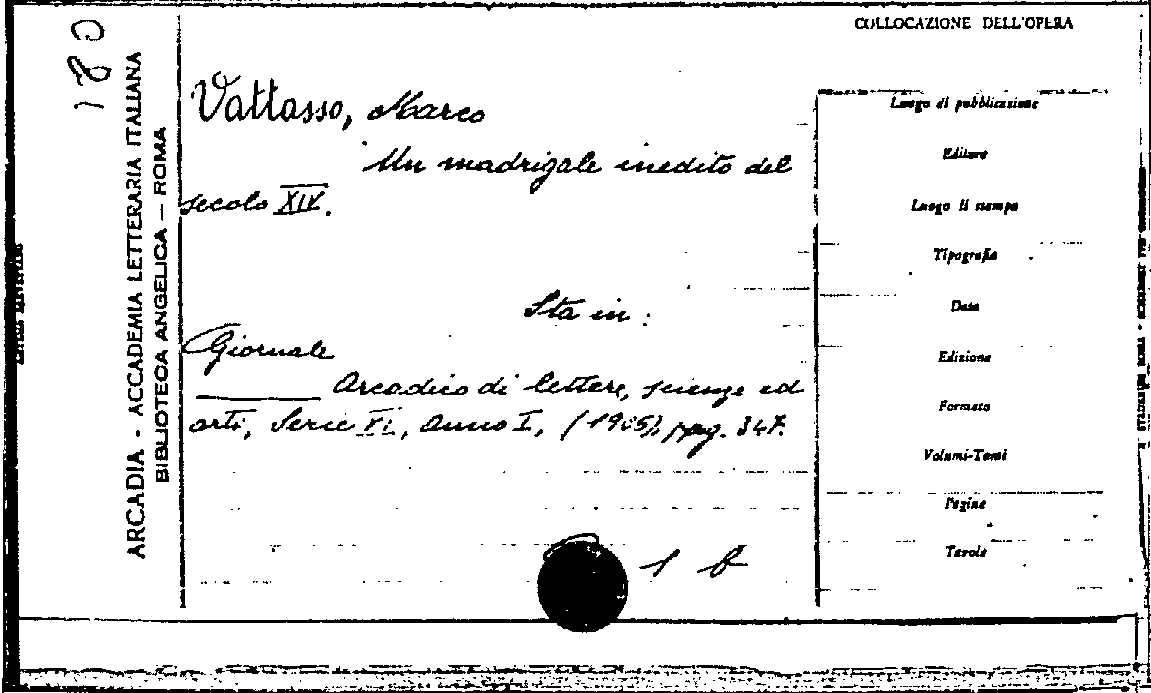 180
ARCADIA - ACCADEMIA LETTERARIA ITALIANA
BIBLIOTECA ANGELICA — ROMA
COLLOCAZIONE DELL'OPERA
Vattasso, Marco
Un madrigale inedito del
secolo XIV.
Sta in:
Giornale
Arcadico di lettere, scienze ed
arti, Serie XI, Anno I, (1905), pag. 347.
1 b
Luogo di pubblicazione
Editore
Luogo di stampa
Tipografia
Data
Edizione
Formato
Volumi-Tomi
Pagine
Tavole